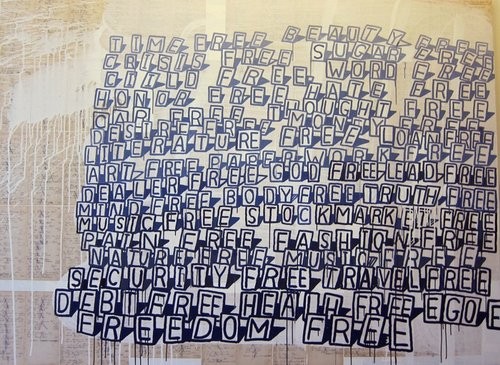 TIME FREE BEAUTY FREE
CRISIS FREE SUGAR FREE
FREE WORD FREE
HONOR FREE HATE FREE
CAR FREE THOUGHT FREE
DESIRE FREE MONEY FREE LOAN FREE
LITERATURE FREE PAPERWORK FREE
ART FREE GOD FREE LEAD FREE
DEALER FREE BODY FREE TRUTH FREE
MUSIC FREE STOCKMARKET FREE
PAIN FREE FASHION FREE
NATURE FREE MUSIC FREE
SECURITY FREE TRAVEL FREE
DEBT FREE HEALTH FREE EGO E
FREEDOM FREE